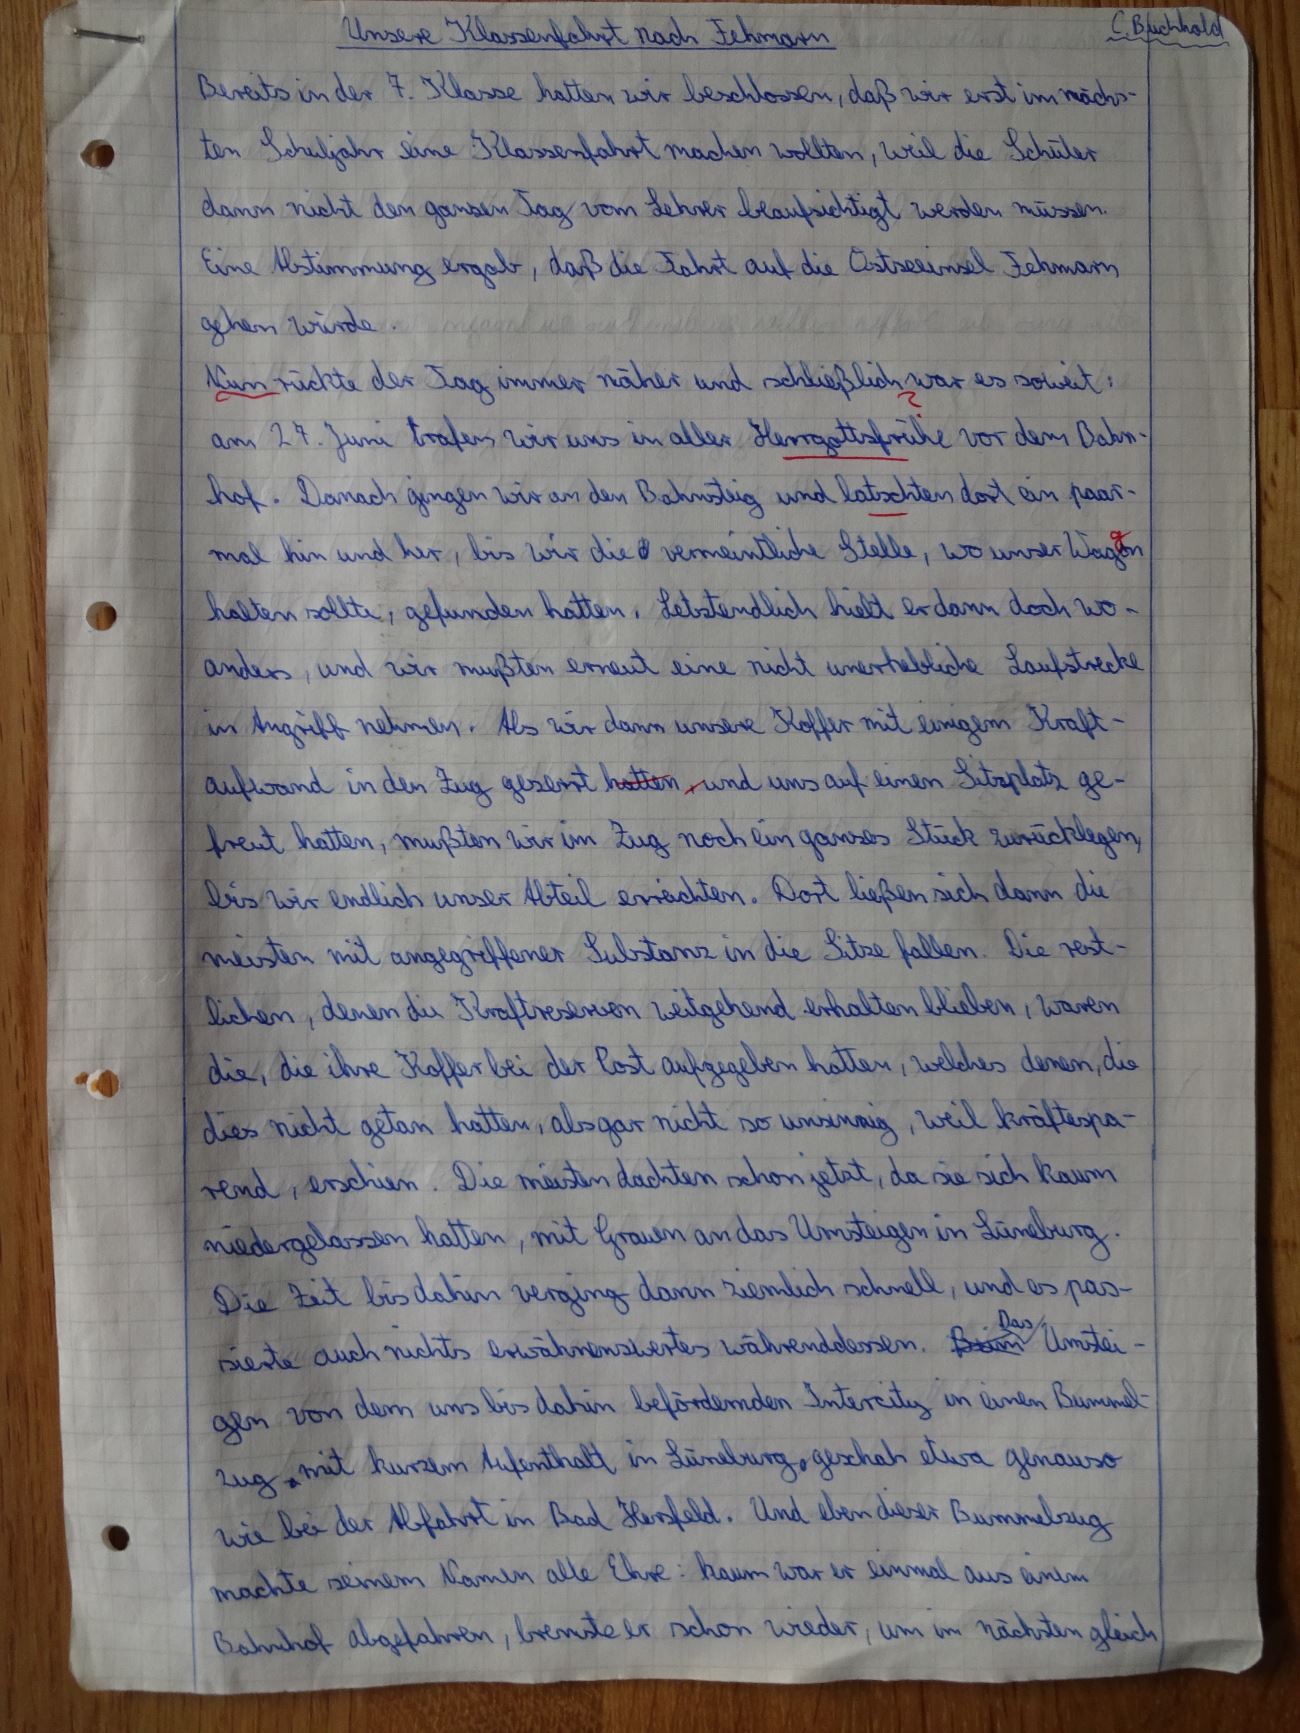 Unsere Klassenfahrt nach Fehmarn
C. Buchhold
Bereits in der 7. Klasse hatten wir beschlossen, daß wir erst im nächs-
ten Schuljahr eine Klassenfahrt machen wollten, weil die Schüler
dann nicht den ganzen Tag vom Lehrer beaufsichtigt werden müssen.
Eine Abstimmung ergab, daß die Fahrt auf die Ostseeinsel Fehmarn
gehen würde.
Nun rückte der Tag immer näher und schließlich war es soweit:
am 27. Juni trafen wir uns in aller Herrgottsfrühe vor dem Bahn-
hof. Danach gingen wir an den Bahnsteig und latschten dort ein paar-
mal hin und her, bis wir die vermeintliche Stelle, wo unser Wagon
halten sollte, gefunden hatten. Letztendlich hielt er dann doch wo-
anders, und wir mußten erneut eine nicht unerhebliche Laufstrecke
in Angriff nehmen. Als wir dann unsere Koffer mit einigem Kraft-
aufwand in den Zug gezerrt hatten, und uns auf einen Sitzplatz ge-
freut hatten, mußten wir im Zug noch ein ganzes Stück zurücklegen,
bis wir endlich unser Abteil erreichten. Dort ließen sich dann die
meisten mit angegriffener Substanz in die Sitze fallen. Die rest-
lichen, denen die Kraftreserven weitgehend erhalten blieben, waren
die, die ihre Koffer bei der Post aufgegeben hatten, welches denen, die
dies nicht getan hatten, als gar nicht so unsinnig, weil kräftespa-
rend, erschien. Die meisten dachten schon jetzt, da sie sich kaum
niedergelassen hatten, mit Grauen an das Umsteigen in Lüneburg.
Die Zeit bis dahin verging dann ziemlich schnell, und es pas-
sierte auch nichts erwähnenswertes währenddessen. Beim Das Umstei-
gen von dem uns bis dahin befördernden Intercity in einen Bummel-
zug, mit kurzem Aufenthalt in Lüneburg, geschah etwa genauso
wie bei der Abfahrt in Bad Hersfeld. Und eben dieser Bummelzug
machte seinem Namen alle Ehre: kaum war er einmal aus einem
Bahnhof abgefahren, bremste er schon wieder, um im nächsten gleich